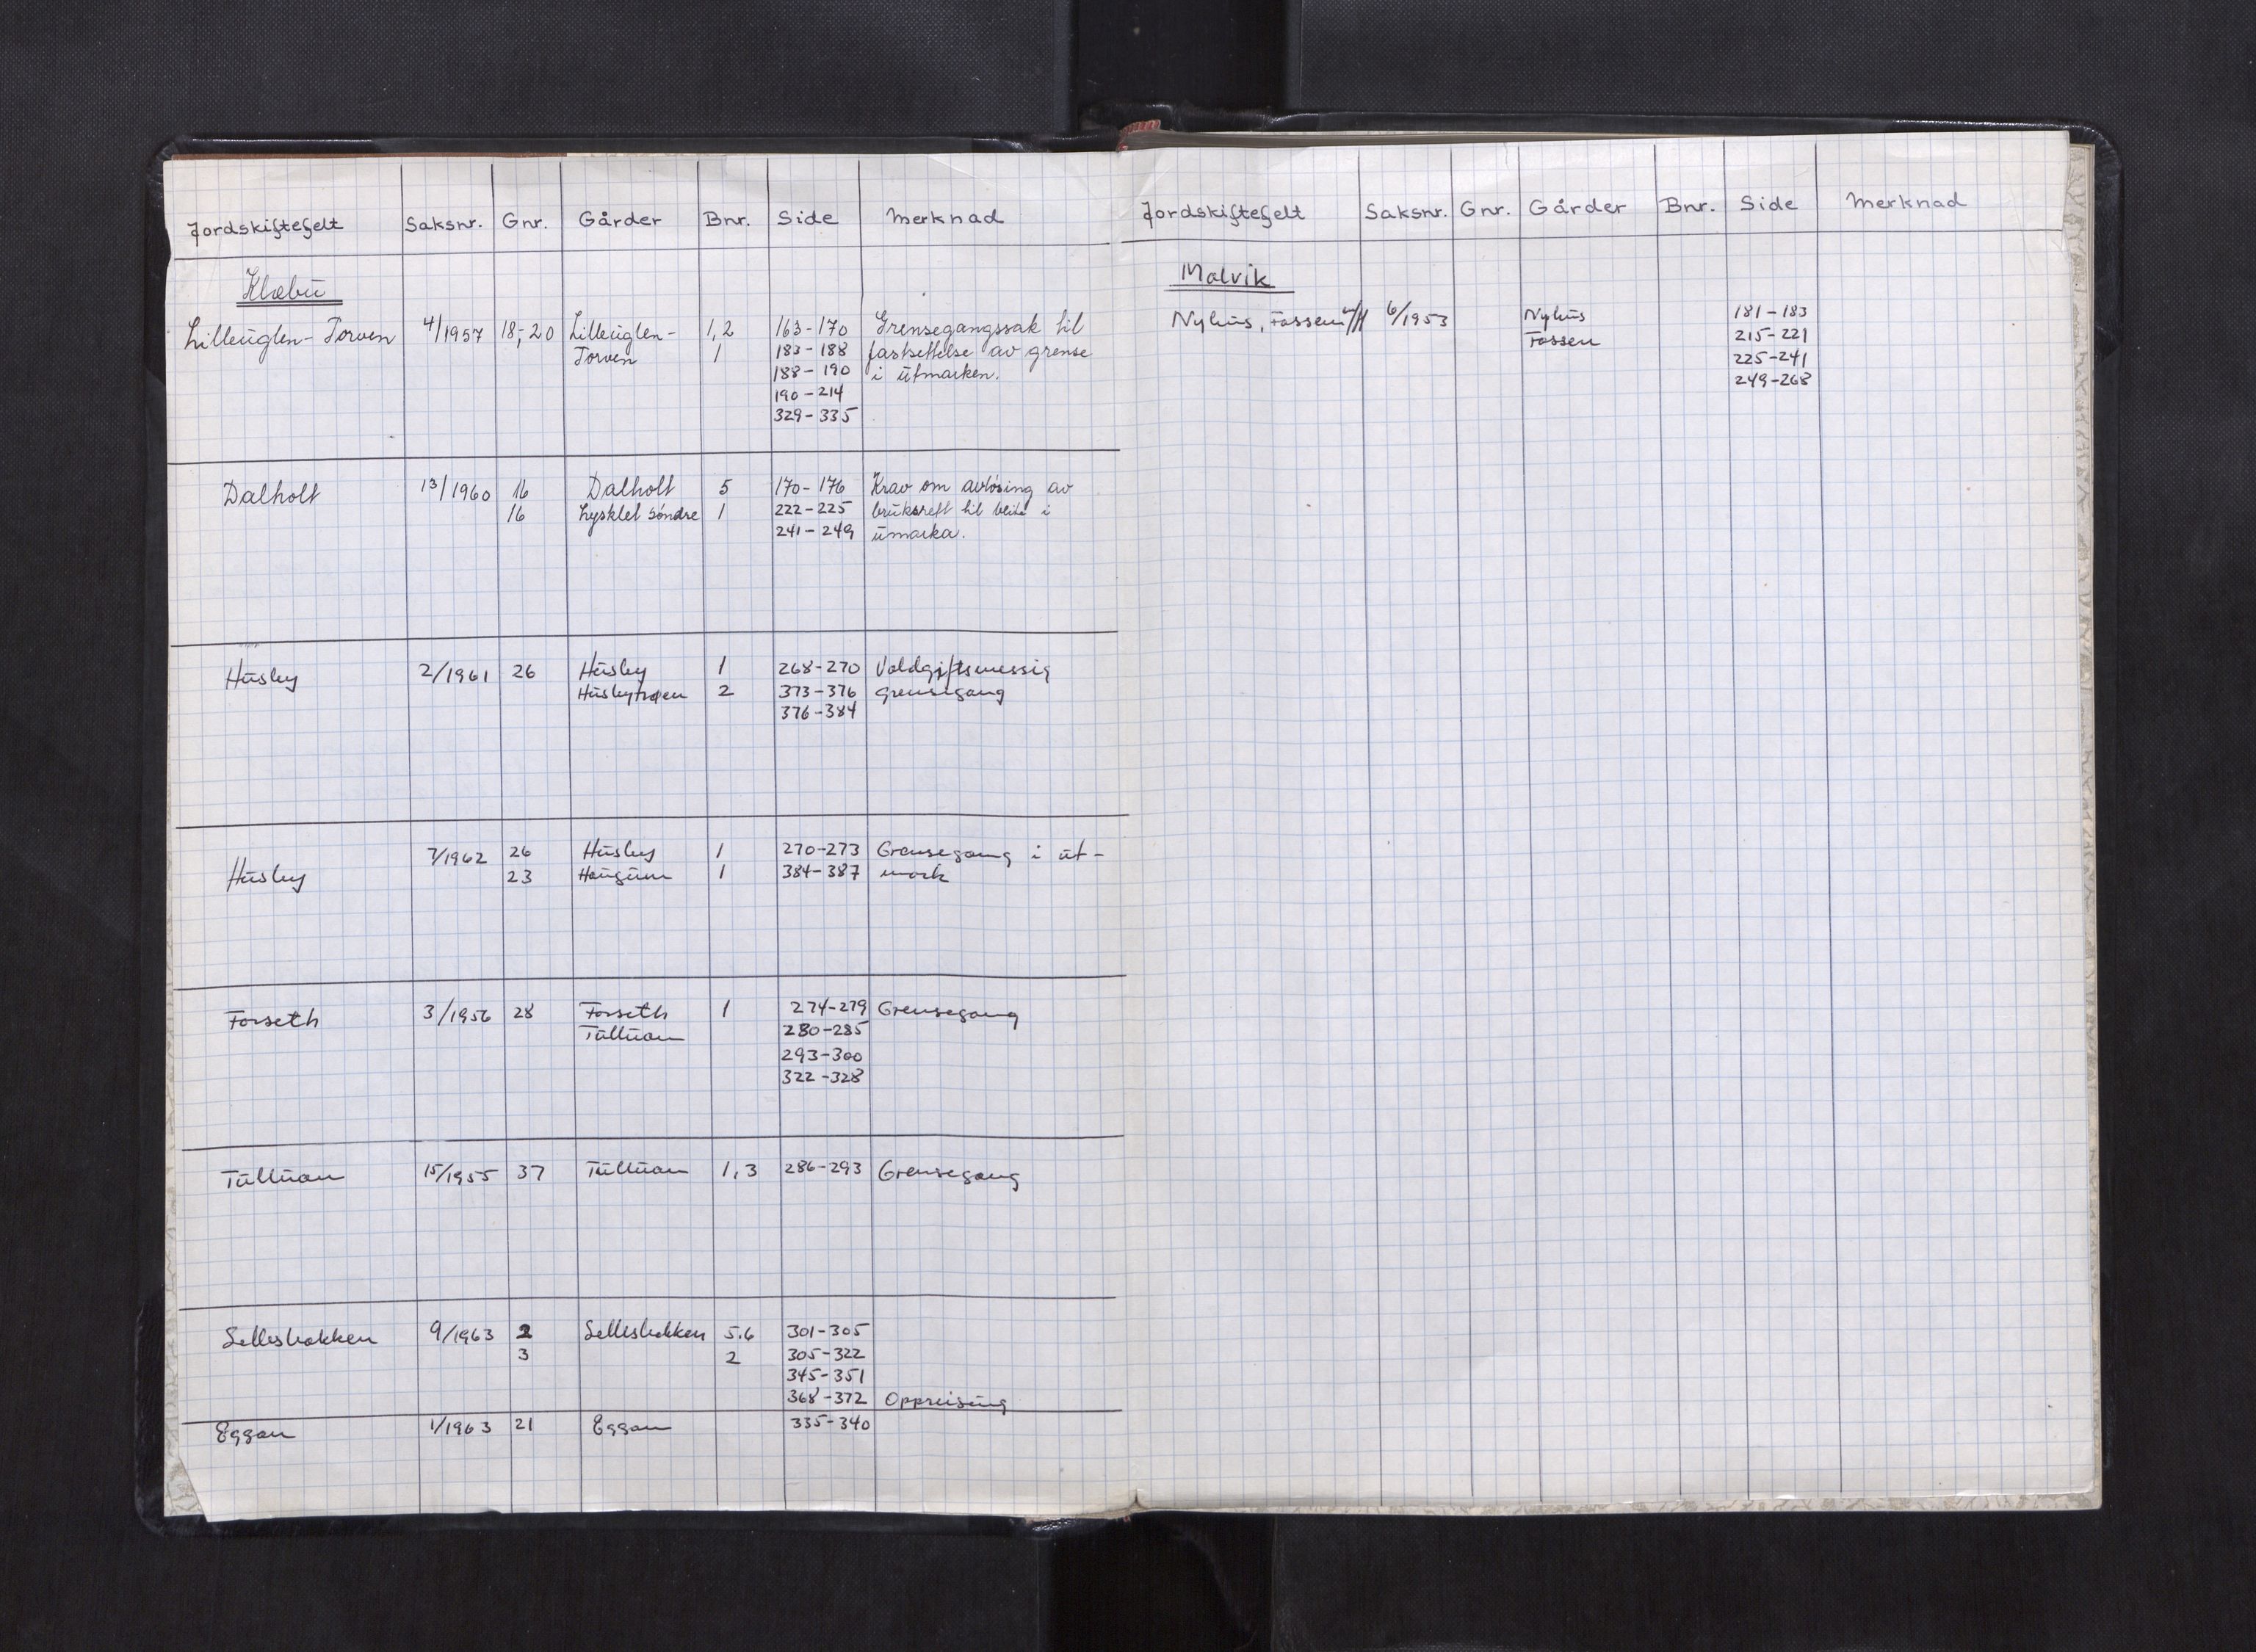 Jordskiftefelt Saksnr. Gnr. Gårder Bnr. Side Merknad
Klæbu
Lilleuglen-Torven 4/1957 18,-20 Lilleuglen- 1,2 163-170 Grensegangssak til
Torven 1 183-188 fastsettelse av grense
188-190 i utmarken.
190-214
329-335
Dalholt 13/1960 16 Dalholt 5 170-176 Krav om avløsing av
16 Lysklet søndre 1 222-225 bruksrett til beite i
241-249 umarka.
Husby 2/1961 26 Husby 1 268-270 Voldgiftsmessig
Husbytrøen 2 373-376 grensegang
376-384
Husby 7/1962 26 Husby 1 270-273 Grensegang i ut-
23 Haugum 1 384-387 mark
Forseth 3/1956 28 Forseth 1 274-279 Grensegang
Tulluan 280-285
293-300
322-328
Tulluan 15/1955 37 Tulluan 1,3 286-293 Grensegang
Sellesbakken 9/1963 2 Sellesbakken 5.6 301-305
3 2 305-322
345-351
368-372 Oppreising
Eggan 1/1963 21 Eggan 335-340
Jordskiftefelt Saksnr. Gnr. Gårder Bnr. Side Merknad
Malvik
Nyhus, Fossen 6/1953 Nyhus 181-183
Fossen 215-221
225-241
249-268